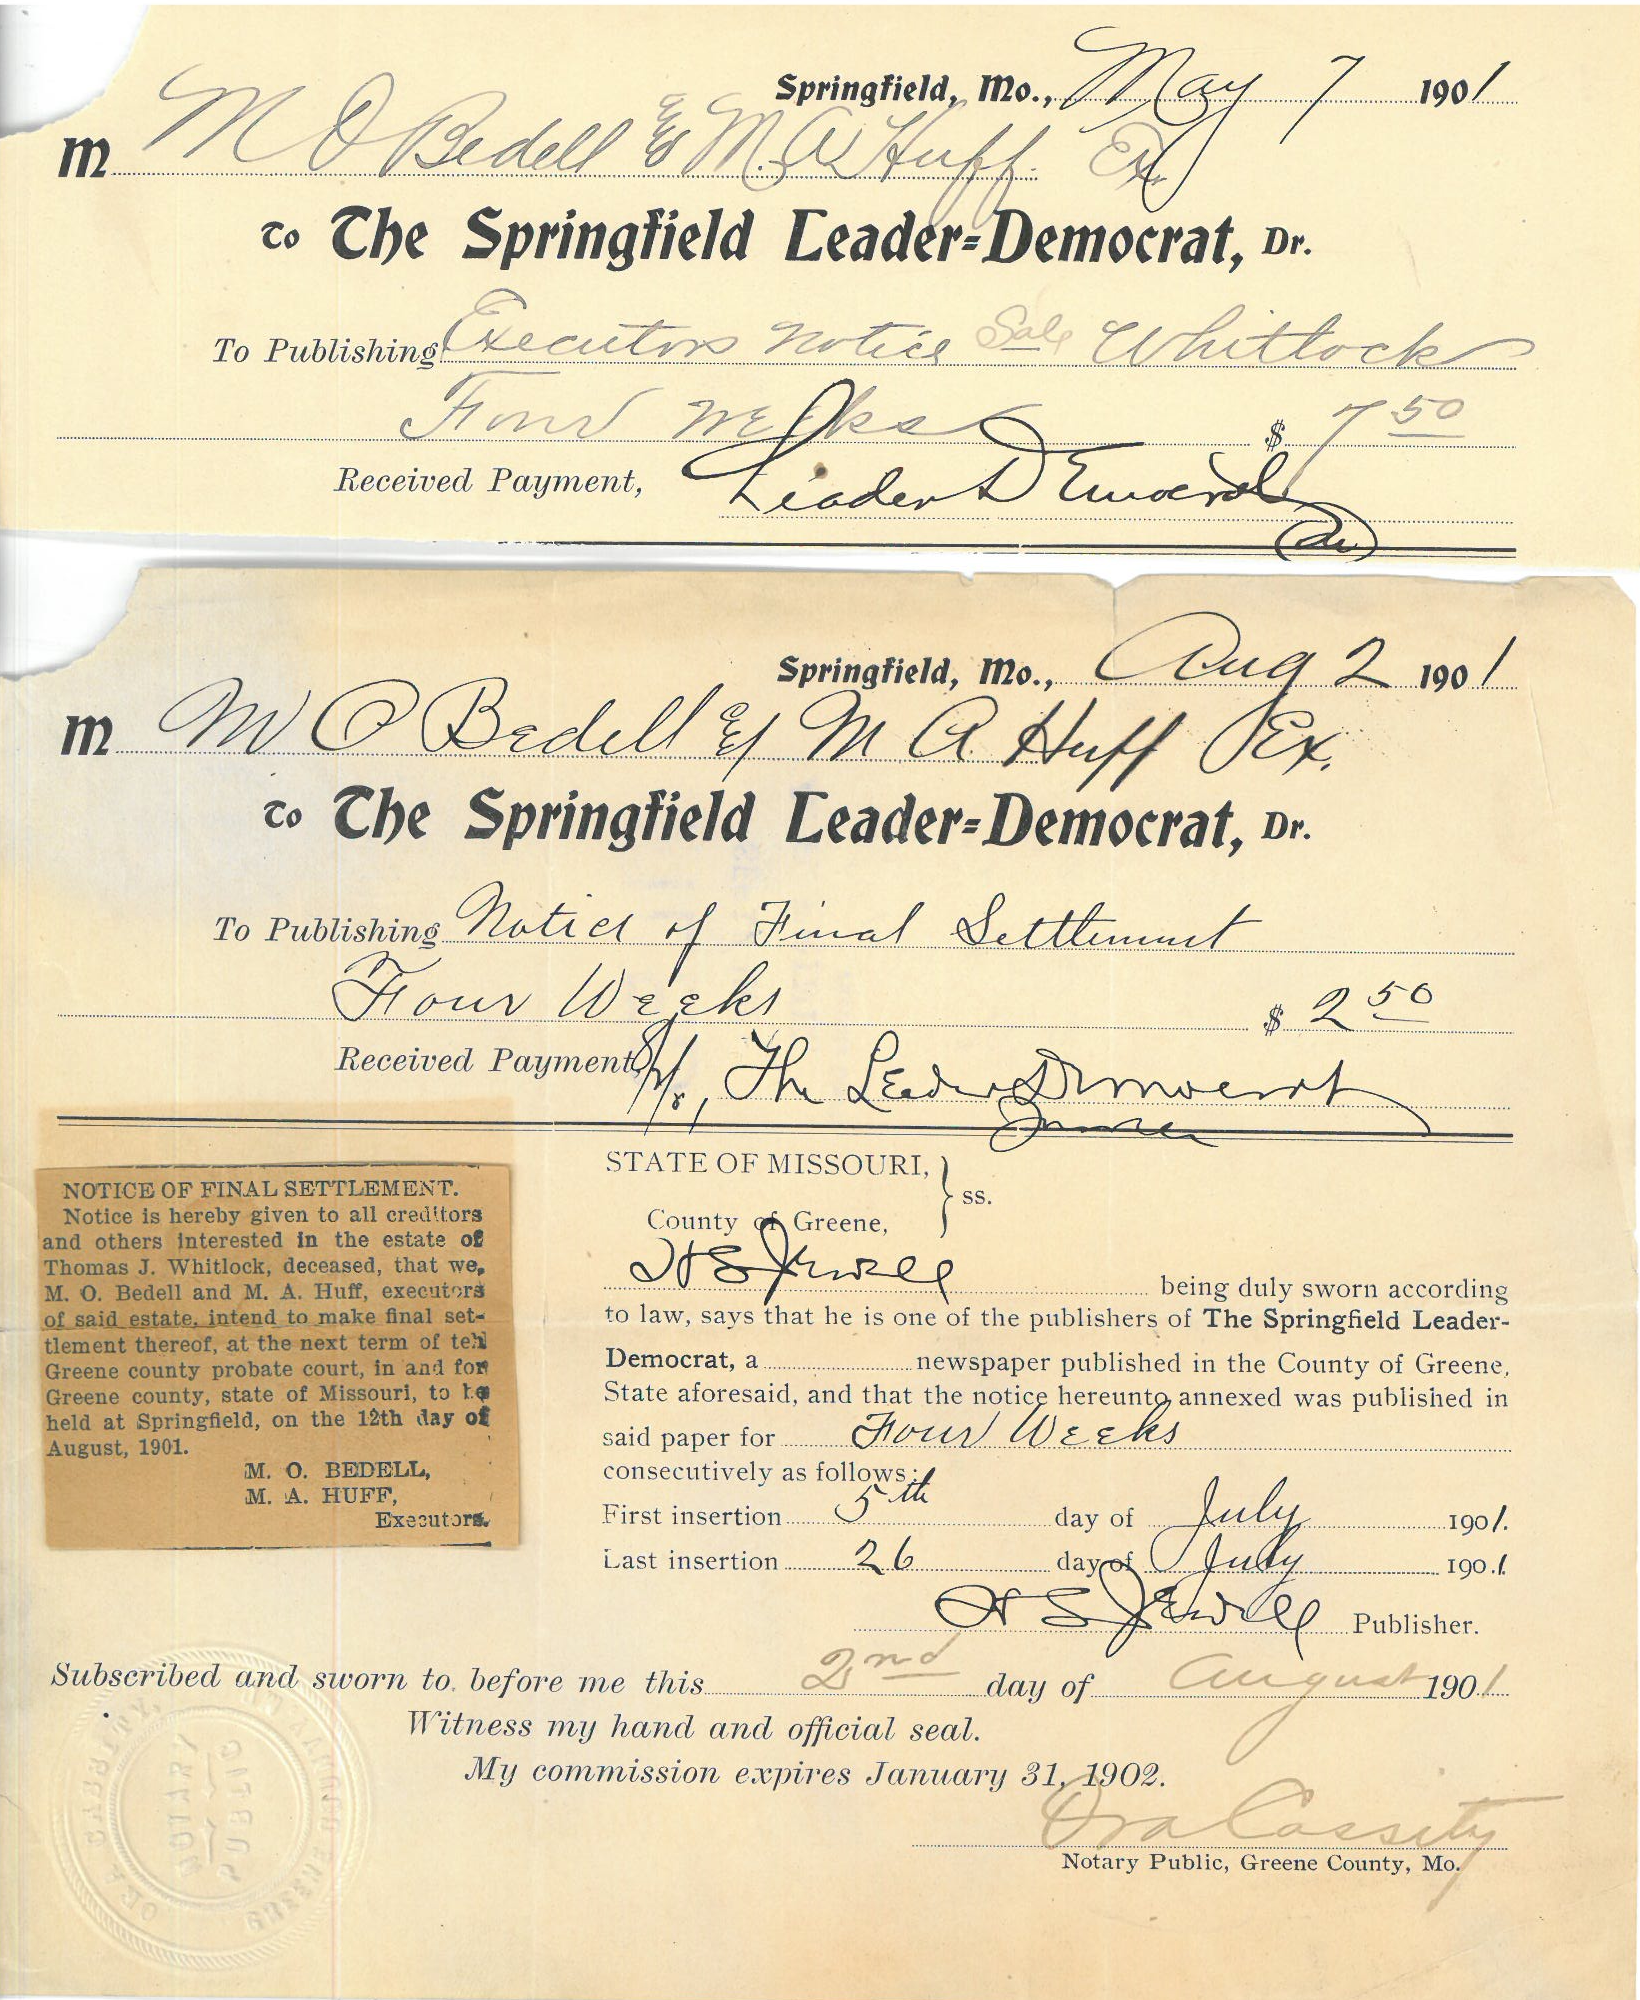 Springfield, Mo., May 7 1901
M M O Bedell & M. A. Huff. Ex.
To The Springfield Leader-Democrat, Dr.
To Publishing Executors Notice Sale Whitlock
Four Weeks $ 7 50
Received Payment, Leader Democrat
Springfield, Mo., Aug 2 1901
M M O Bedell & M A Huff Ex.
To The Springfield Leader-Democrat, Dr.
To Publishing Notice of Final Settlement
Four Weeks $ 2 50
Received Payment, The Leader Democrat
NOTICE OF FINAL SETTLEMENT.
Notice is hereby given to all creditors
and others interested in the estate of
Thomas J. Whitlock, deceased, that we,
M. O. Bedell and M. A. Huff, executors
of said estate, intend to make final set-
tlement thereof, at the next term of teh
Greene county probate court, in and for
Greene county, state of Missouri, to be
held at Springfield, on the 12th day of
August, 1901.
M. O. BEDELL,
M. A. HUFF,
Executors.
STATE OF MISSOURI, } ss.
County of Greene,
H S Jewell being duly sworn according
to law, says that he is one of the publishers of The Springfield Leader-
Democrat, a newspaper published in the County of Greene,
State aforesaid, and that the notice hereunto annexed was published in
said paper for Four Weeks
consecutively as follows:
First insertion 5th day of July 1901.
Last insertion 26 day of July 1901.
H S Jewell Publisher.
Subscribed and sworn to before me this 2nd day of August 1901
Witness my hand and official seal.
My commission expires January 31, 1902.
Ora Cassity
Notary Public, Greene County, Mo.
ORA CASSITY,
NOTARY
PUBLIC